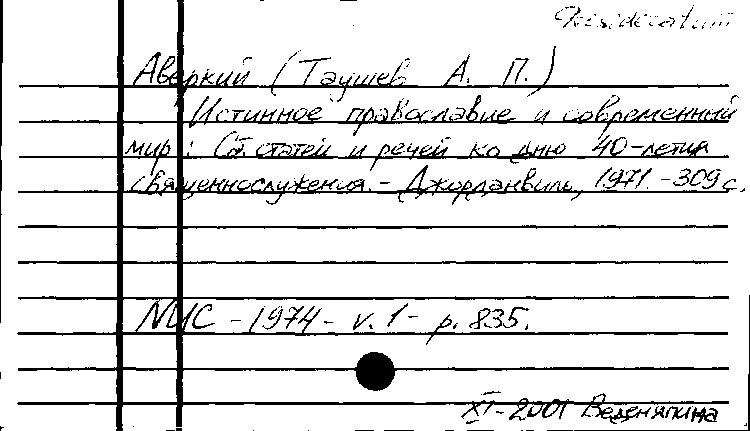 Desideratum
Аверкий (Таушев А. П.)
Истинное православие и современный
мир : Сб. статей и речей ко дню 40-летия
священнослужения. - Джорданвилль, 1971. - 309 с.
NUC - 1974 - v. 1 - p. 835.
XI-2001 Веденяпина